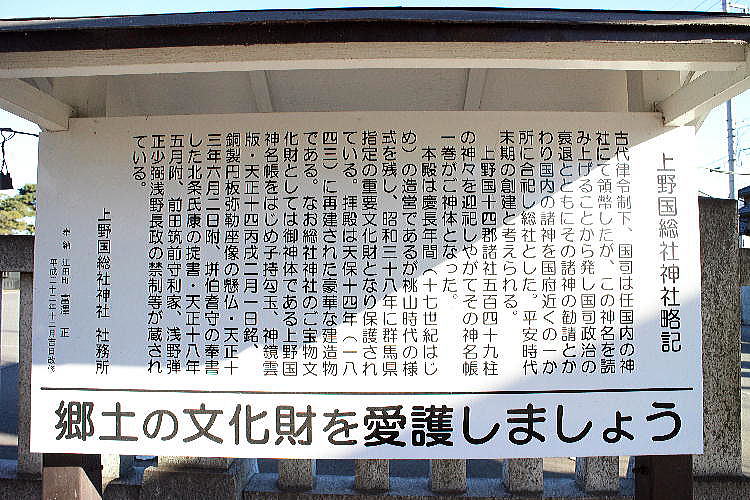 上野国総社神社略記
古代律令制下、国司は任国内の神
社にて領幣したが、この神名を読
み上げることから発し国司政治の
衰退とともにその諸神の勧請とか
わり国内の諸神を国府近くの一か
所に合祀し総社とした。平安時代
末期の創建と考えられる。
上野国十四郡諸社五百四十九柱
の神々を迎祀しやがてその神名帳
一巻がご神体となった。
本殿は慶長年間（十七世紀はじ
め）の造営であるが桃山時代の様
式を残し、昭和三十八年に群馬県
指定の重要文化財となり保護され
ている。拝殿は天保十四年（一八
四三）に再建された豪華な建造物
である。なお総社神社のご宝物文
化財としては御神体である上野国
神名帳をはじめ子持勾玉、神鏡雲
版・天正十四丙戌二月一日銘、
銅製円板弥勒座像の懸仏・天正十
三年六月二日附、垪伯耆守の奉書
した北条氏康の掟書・天正十八年
五月附、前田筑前守利家、浅野弾
正少弼浅野長政の禁制等が蔵され
ている。
上野国総社神社 社務所
奉納 江田町 富澤 正
平成二十二年十二月吉日改修
郷土の文化財を愛護しましょう